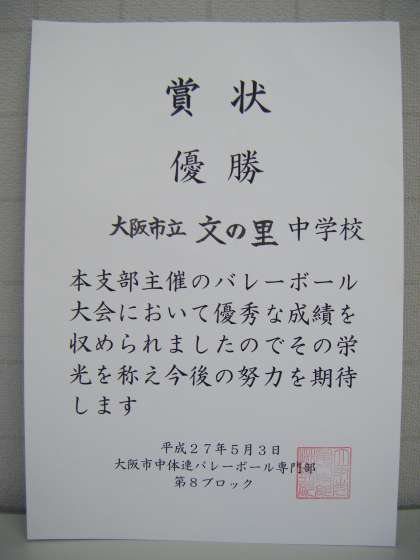 賞状
優勝
大阪市立 文の里 中学校
本支部主催のバレーボール
大会において優秀な成績を
収められましたのでその栄
光を称え今後の努力を期待
します
平成27年5月3日
大阪市中体連バレーボール専門部
第8ブロック